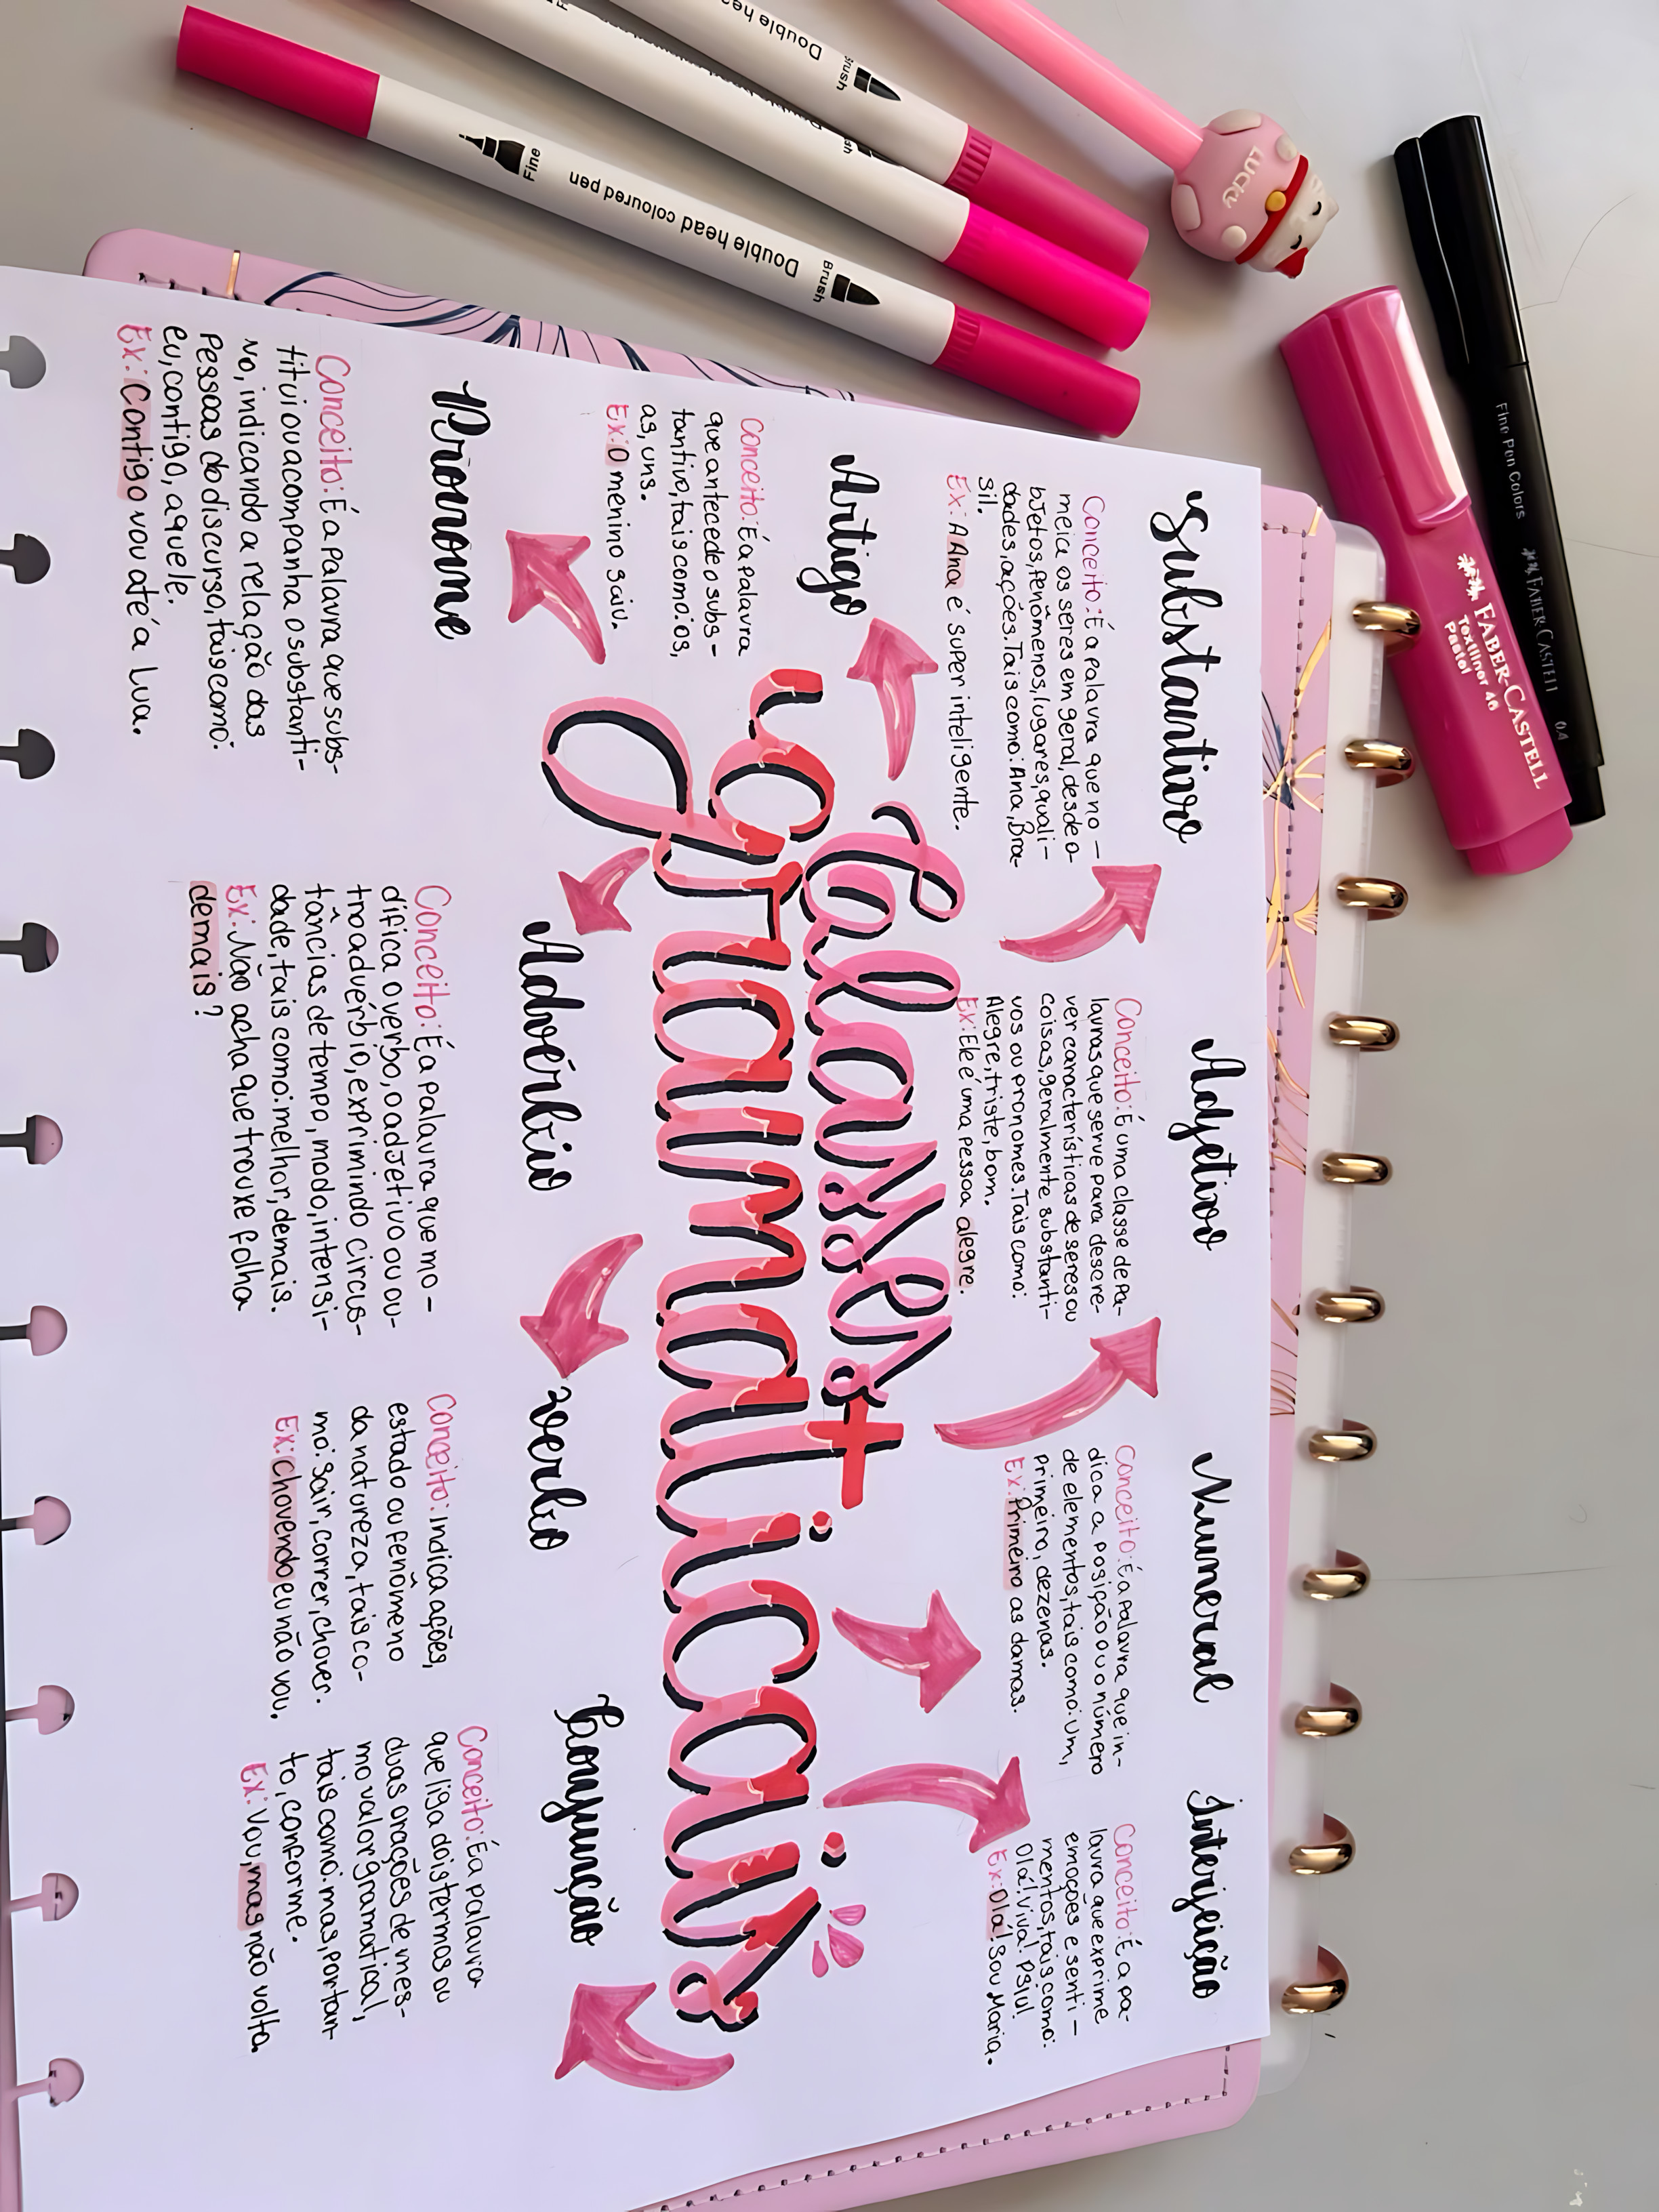 Classes
gramaticais
Substantivo
Conceito: É a palavra que no-
meia os seres em geral, desde o-
bjetos, fenômenos, lugares, quali-
dades, ações. Tais como: Ana, Bra-
sil.
Ex: A Ana é super inteligente.
Adjetivo
Conceito: É uma classe de pa-
lavras que serve para descre-
ver características de seres ou
coisas, geralmente substanti-
vos ou pronomes. Tais como:
Alegre, triste, bom.
Ex: Ele é uma pessoa alegre.
Numeral
Conceito: É a palavra que in-
dica a posição ou o número
de elementos, tais como: um,
primeiro, dezenas.
Ex: Primeiro as damas.
Interjeição
Conceito: É a pa-
lavra que exprime
emoções e senti-
mentos, tais como:
Olá! Viva! Psiu!
Ex: Olá! Sou Maria.
Artigo
Conceito: É a palavra
que antecede o subs-
tantivo, tais como: os,
as, uns.
Ex: O menino saiu.
Pronome
Conceito: É a palavra que subs-
titui ou acompanha o substanti-
vo, indicando a relação das
pessoas do discurso, tais como:
eu, contigo, aquele.
Ex: Contigo vou até a Lua.
Advérbio
Conceito: É a palavra que mo-
difica o verbo, o adjetivo ou ou-
tro advérbio, exprimindo circus-
tâncias de tempo, modo, intensi-
dade, tais como: melhor, demais.
Ex: Não acha que trouxe folha
demais?
Verbo
Conceito: Indica ações,
estado ou fenômeno
da natureza, tais co-
mo: sair, correr, chover.
Ex: Chovendo eu não vou.
Conjunção
Conceito: É a palavra
que liga dois termos ou
duas orações de mes-
mo valor gramatical,
tais como: mas, portan-
to, conforme.
Ex: Vou, mas não volto.
Fine
Double head coloured pen
Brush
Double head
Brush
LUCKY
FABER-CASTELL
Textliner 46
Pastel
Fine Pen Colors
FABER CASTELL
0.4